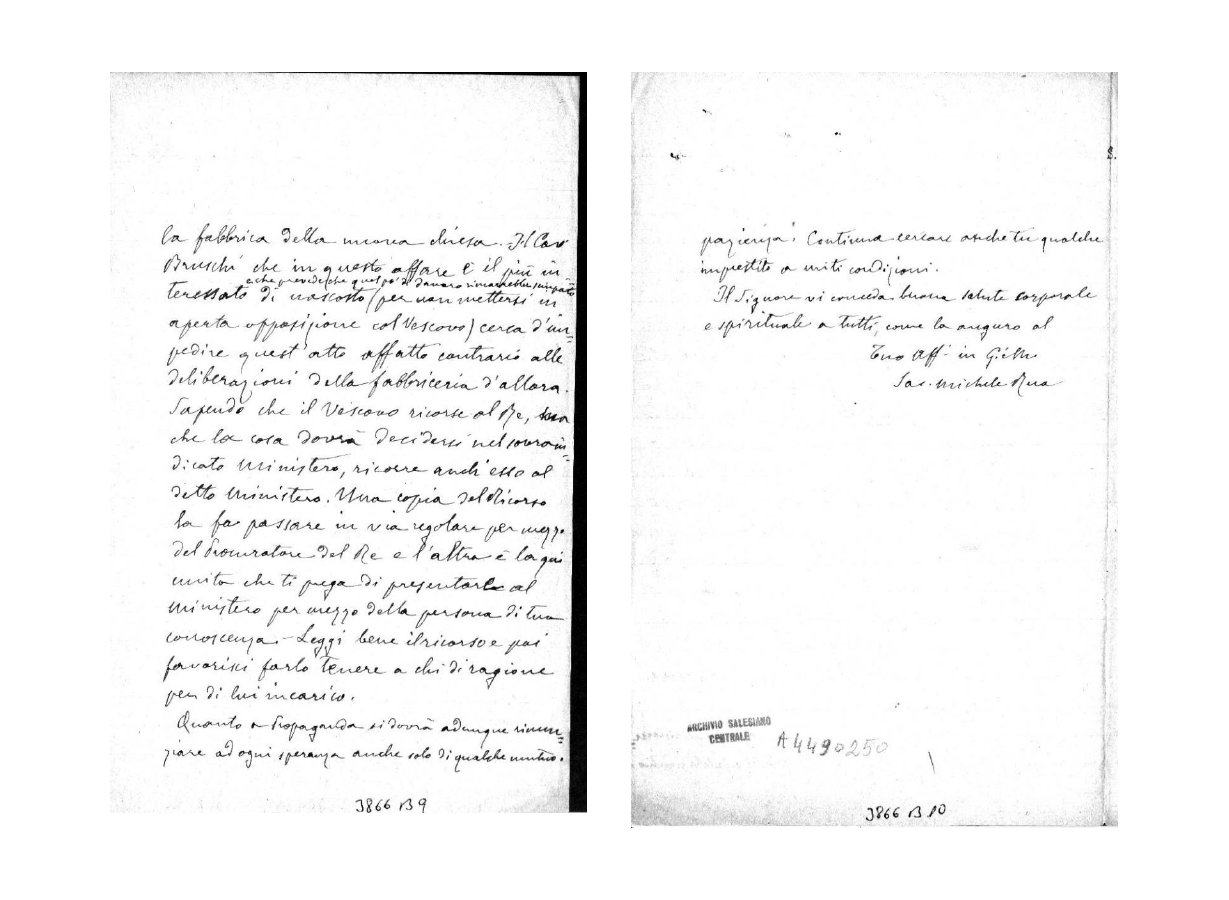 la fabbrica della nuova chiesa. Il Cav
Bruschi che in questo affare è il più in=
e che prevede che quel po' di danaro rimarrebbe
teressato di nascosto (per non mettersi in
aperta opposizione col Vescovo) cerca d'im=
pedire quest'atto affatto contrario alle
deliberazioni della fabbriceria d'allora.
Sapendo che il Vescovo ricorse al Re,
che la cosa dovrà decidersi nel sovrain=
dicato Ministero, ricorre anch'esso al
detto Ministero. Una copia del Ricorso
la fa passare in via regolare per mezzo
del Procuratore del Re e l'altra è la qui
unita che ti prega di presentarla al
Ministero per mezzo della persona di tua
conoscenza. - Leggi bene il ricorso e poi
favorisci farlo tenere a chi di ragione
per di lui incarico.
Quanto a Propaganda si dovrà adunque rinun=
ziare ad ogni speranza anche solo di qualche mutuo.
3866 B 9
pazienza! Continua cercare anche tu qualche
imprestito a miti condizioni.
Il Signore vi conceda buona salute corporale
e spirituale a tutti, come la auguro al
Tuo Aff. in G. e M.
Sac. Michele Rua
ARCHIVIO SALESIANO
CENTRALE
A4490250
3866 B 10